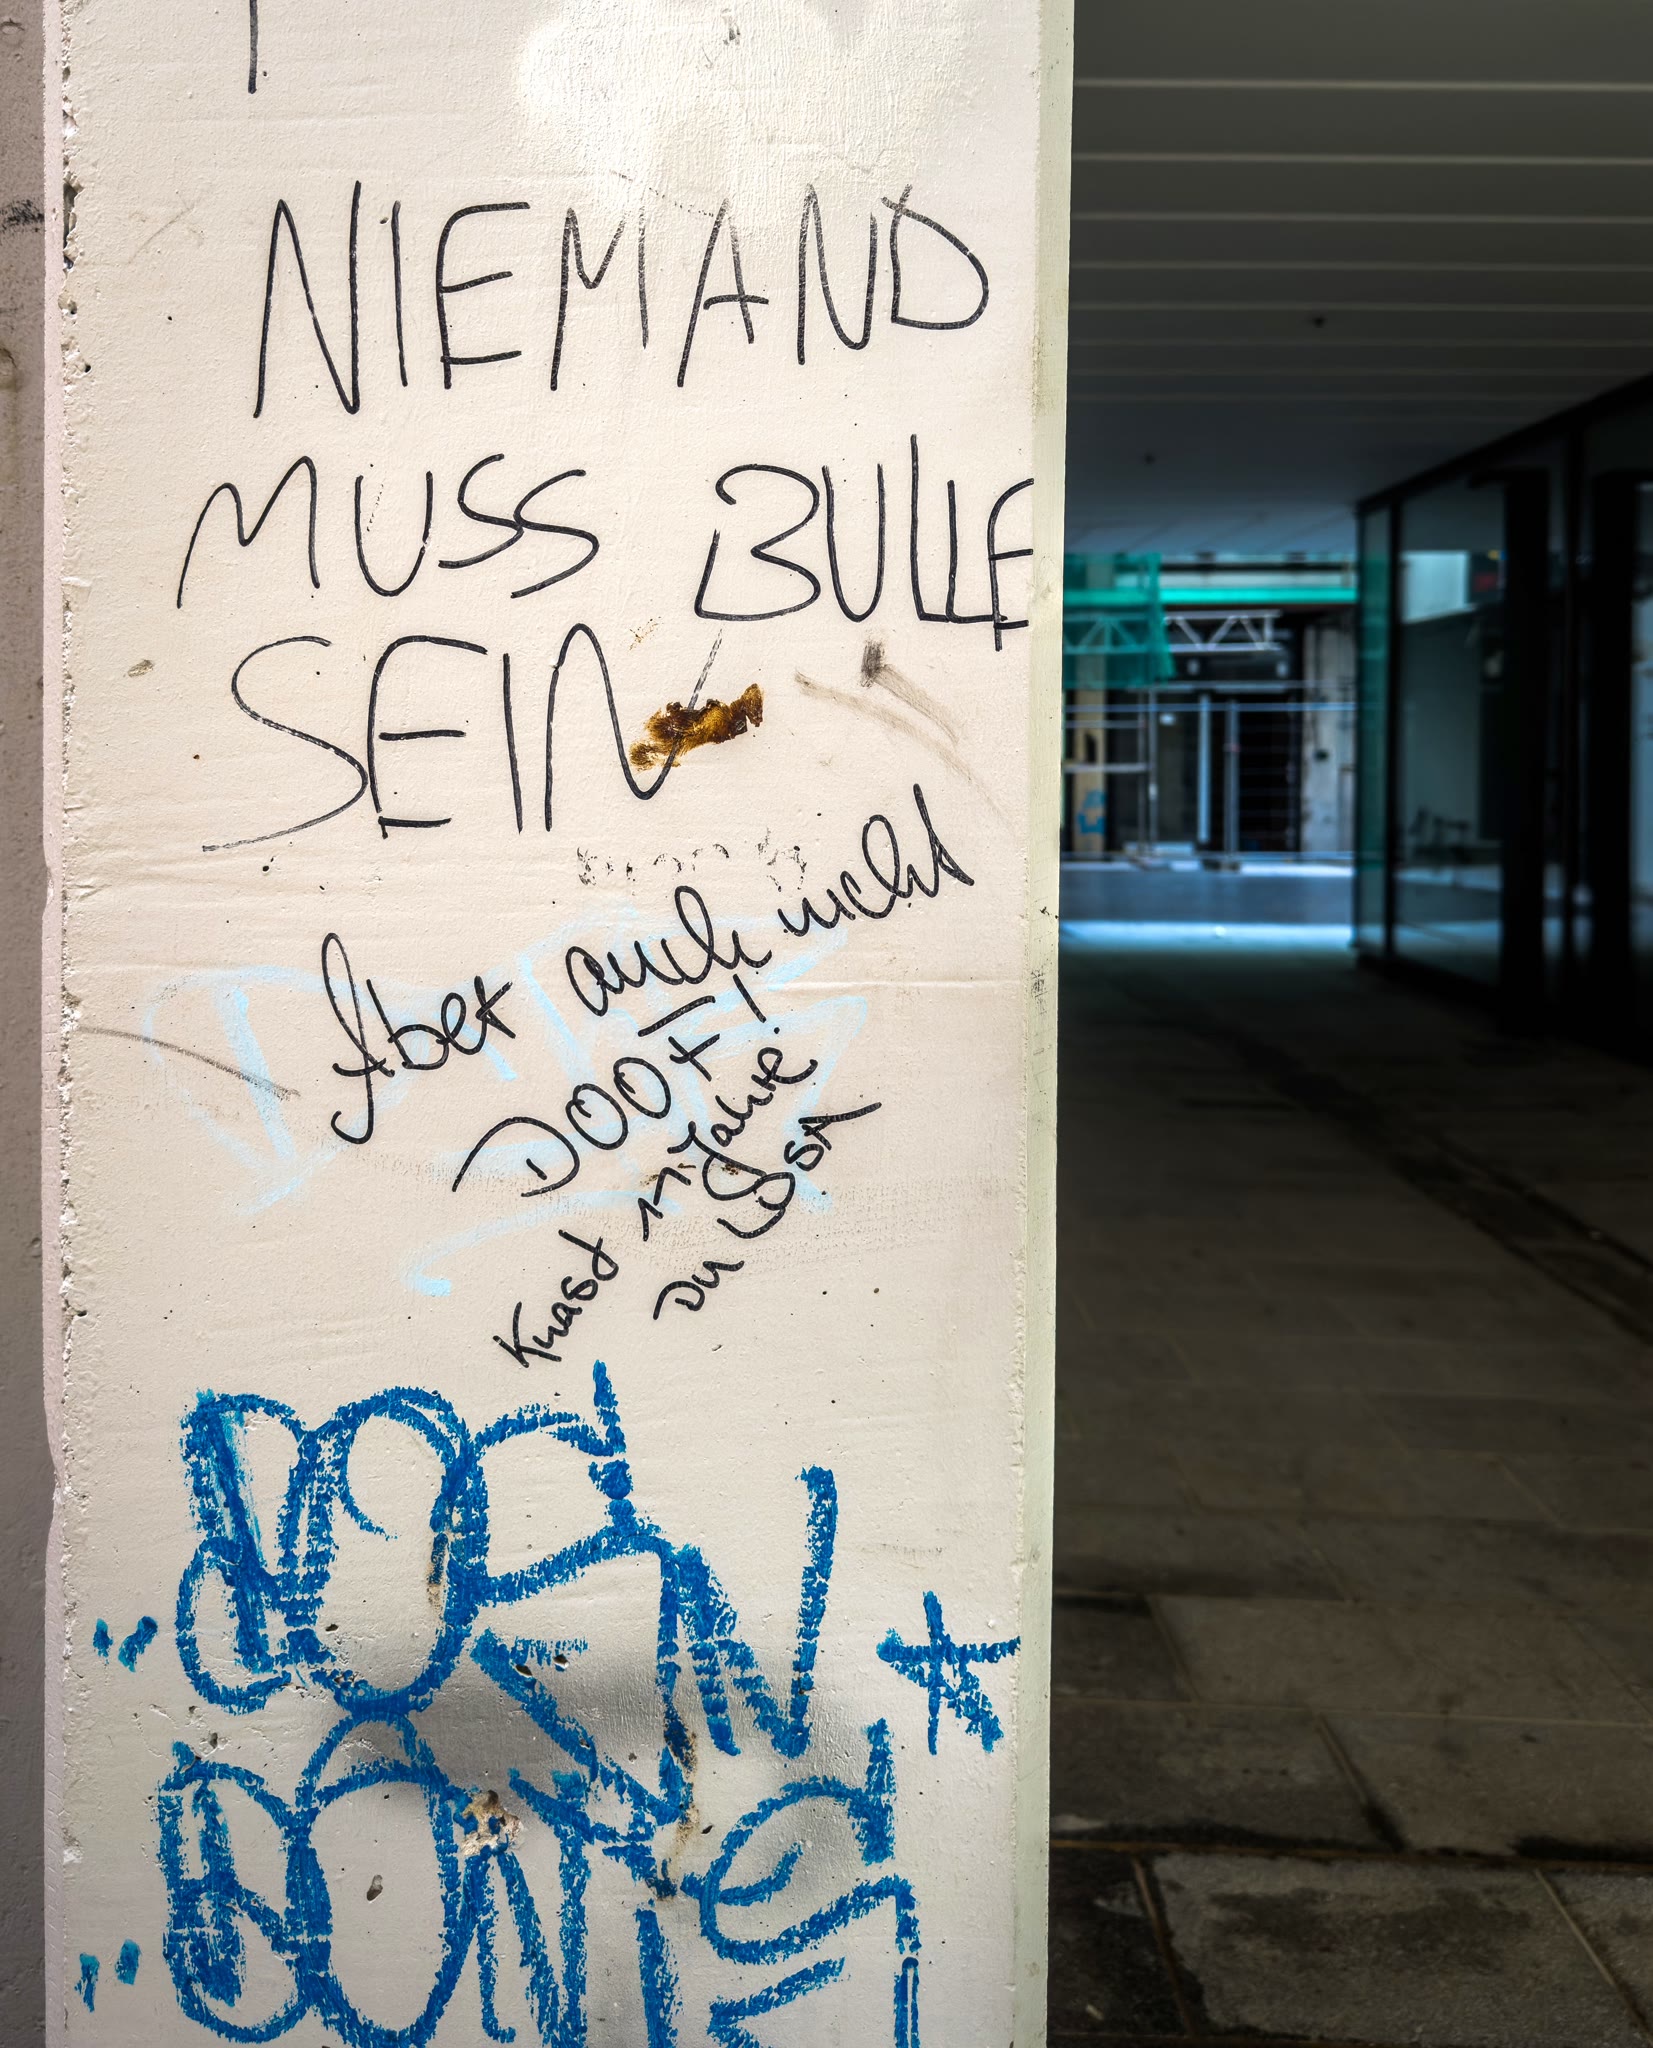 NIEMAND
MUSS BULLE
SEIN
Aber auch nicht
DOOF!
Knast n Jahre!
Du
BORN
BONES